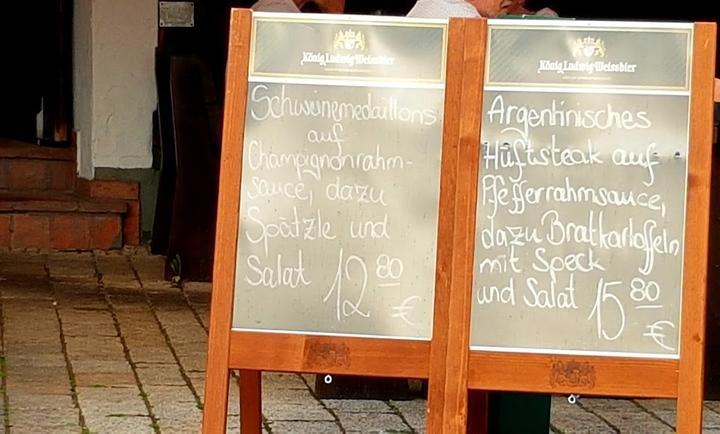 König Ludwig Weissbier
Schweinemedaillons
auf
Champignonrahm-
sauce, dazu
Spätzle und
Salat 12 80 €
König Ludwig Weissbier
Argentinisches
Hüftsteak auf
Pfefferrahmsauce,
dazu Bratkartoffeln
mit Speck
und Salat 15 80 €